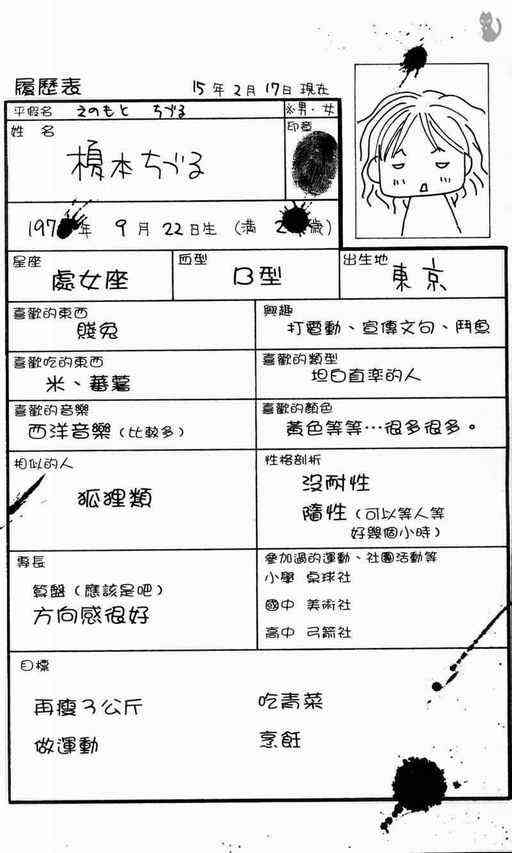 履歷表
15年2月17日現在
平假名 えのもと ちづる
※男・女
姓 名
榎本ちづる
印章
197 年 9月22日生 (満 2 歳)
星座
處女座
血型
B型
出生地
東京
喜歡的東西
賤兔
興趣
打電動、宣傳文句、鬥魚
喜歡吃的東西
米、蕃薯
喜歡的類型
坦白直率的人
喜歡的音樂
西洋音樂(比較多)
喜歡的顏色
黃色等等…很多很多。
相似的人
狐狸類
性格剖析
沒耐性
隨性(可以等人等
好幾個小時)
專長
算盤(應該是吧)
方向感很好
參加過的運動、社團活動等
小學 桌球社
國中 美術社
高中 弓箭社
目標
再瘦3公斤
吃青菜
做運動
烹飪